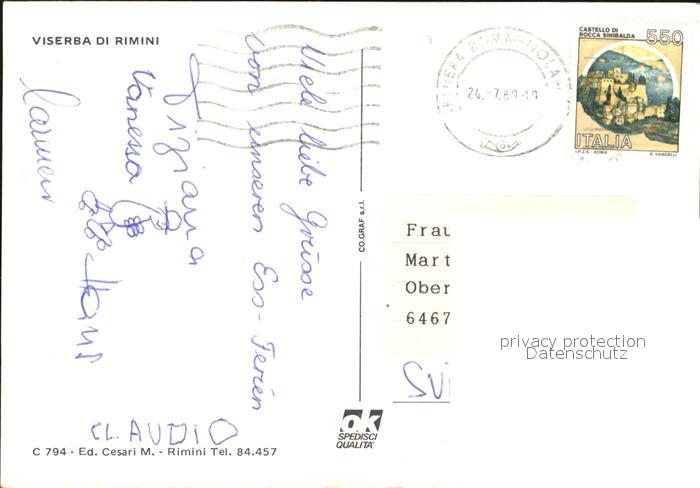 VISERBA DI RIMINI
Viele liebe Grüsse
von unseren Ess-Ferien
Tiziana
Vanessa
Carmen
Hans
CLAUDIO
C 794 - Ed. Cesari M. - Rimini Tel. 84.457
CO.GRAF s.r.l.
ok
SPEDISCI
QUALITA'
24.-7.89-19
CASTELLO DI
ROCCA SINIBALDA
550
ITALIA
I.P.Z.S. - ROMA E. VANGELLI
Frau
Mart
Ober
6467
privacy protection
Datenschutz